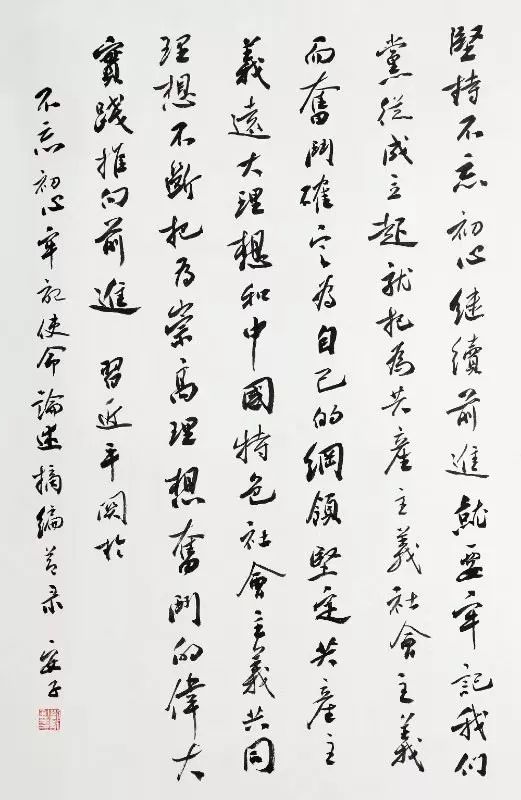 堅持不忘初心继續前進就要牢記我们
黨從成立起就把為共產主義社會主義
而奮鬥確定為自己的綱領堅定共產主
義遠大理想和中國特色社會主義共同
理想不斷把為崇高理想奮鬥的偉大
實踐推向前進 習近平関於
不忘初心牢記使命論述摘編节录 安子